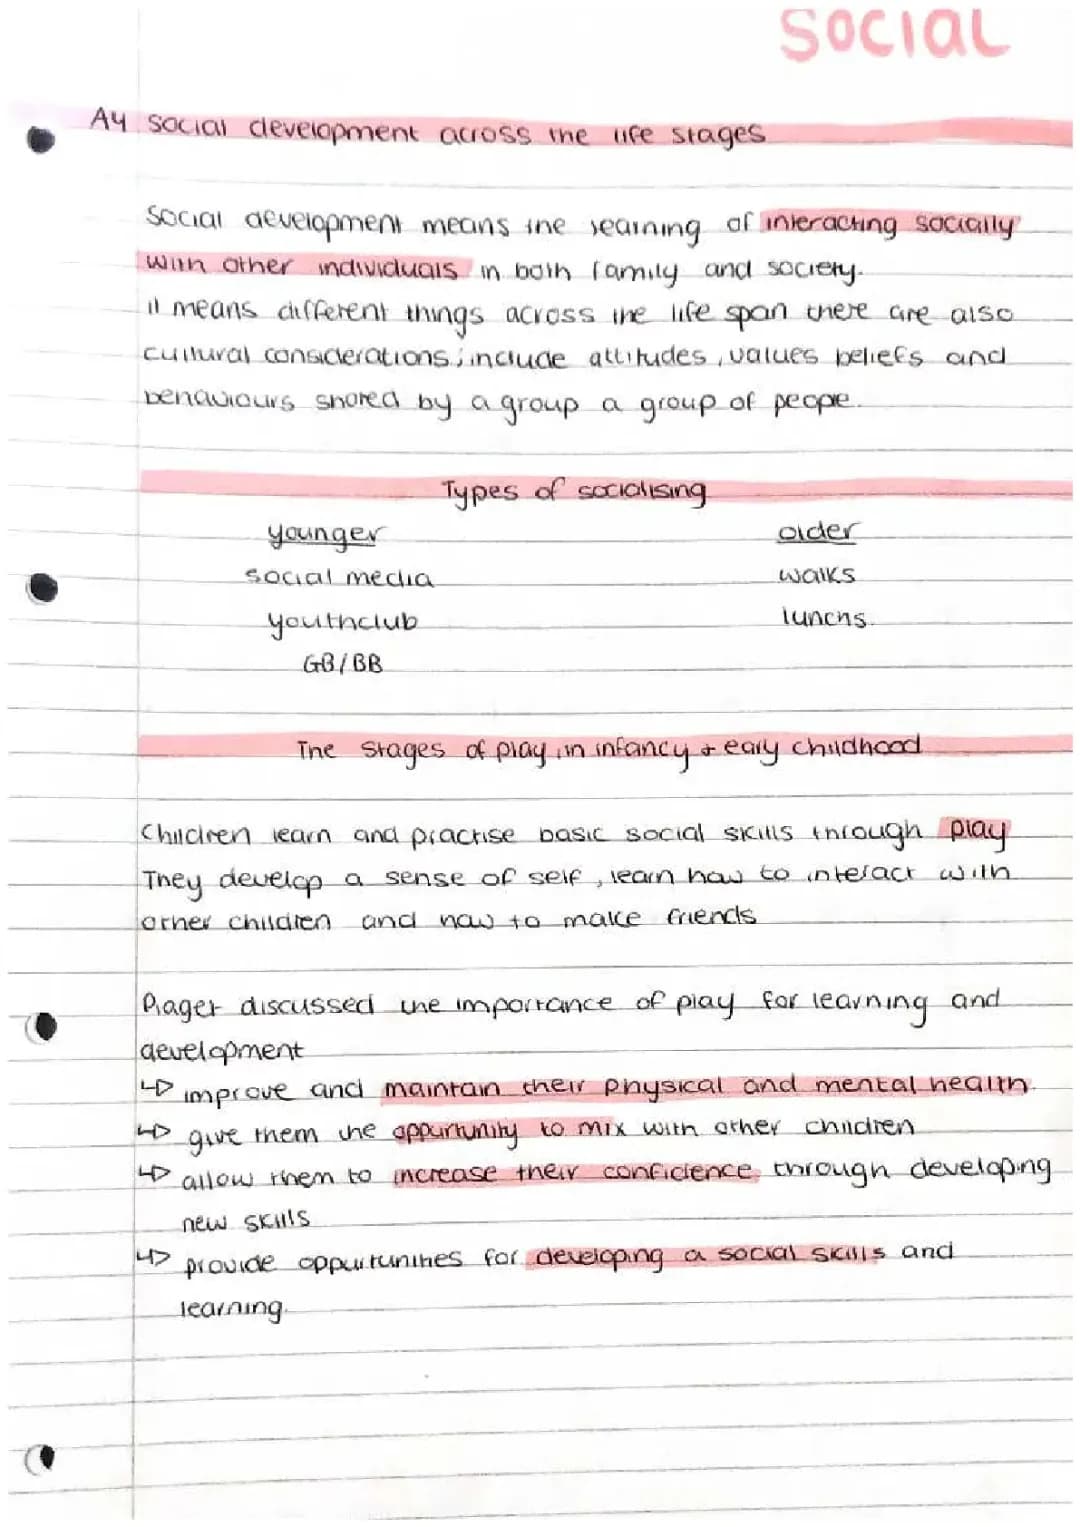 SOCIAL
A4 social development across the life stages
Social development means the learning of interacting socially
with other individuals in both family and society.
it means different things across the life span there are also
cultural considerations; include attitudes, values beliefs and
behaviours shared by a group a group of people.
Types of socialising
younger older
social media walks
youthclub lunchs.
GB/BB
The stages of play in infancy + eary childhood
Children learn and practise basic social skills through play
They develop a sense of self, learn how to interact with
other children and how to make friends
Piaget discussed the importance of play for learning and
development
↳ improve and maintain their physical and mental health.
↳ give them the oppurtunity to mix with other children
↳ allow them to increase their confidence through developing
new skills
↳ provide oppurtunities for developing a social skills and
learning.